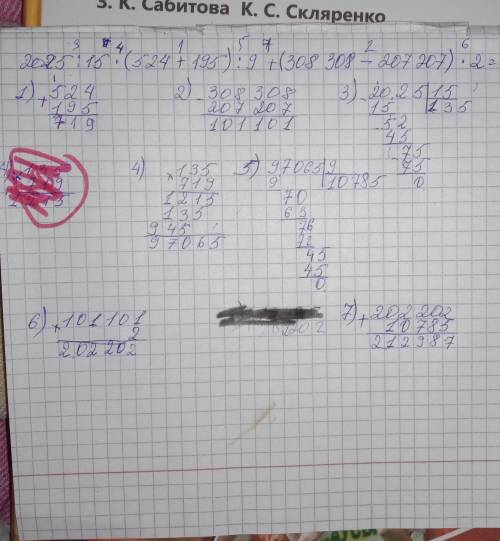 З. К. Сабитова К. С. Скляренко
3 4 1 5 7 2 6
2025 : 15 · (524 + 195) : 9 + (308 308 - 207 207) · 2 =
1) + 524
195
719
2) - 308 308
207 207
101 101
3) - 2025 | 15
15 | 135
- 52
45
- 75
75
0
4) × 135
719
1215
135
945
97065
5) 97065 | 9
9 | 10785
70
63
76
72
45
45
0
6) × 101 101
2
202 202
7) + 202 202
10785
212987